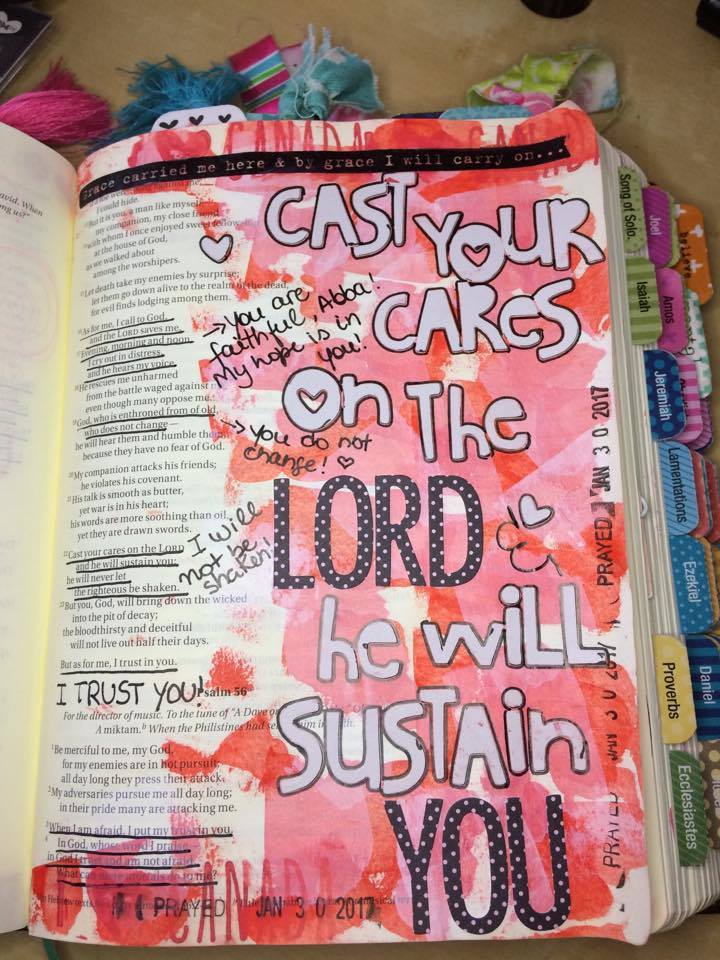 CANADA
Grace carried me here & by grace I will carry on...
I could hide.
But it is you, a man like myself,
my companion, my close friend,
with whom I once enjoyed sweet fellowship
at the house of God,
as we walked about
among the worshipers.
Let death take my enemies by surprise;
let them go down alive to the realm of the dead,
for evil finds lodging among them.
As for me, I call to God,
and the LORD saves me.
Evening, morning and noon
I cry out in distress,
and he hears my voice.
He rescues me unharmed
from the battle waged against
even though many oppose me.
God, who is enthroned from of old,
who does not change—
he will hear them and humble them,
because they have no fear of God.
20 My companion attacks his friends;
he violates his covenant.
21 His talk is smooth as butter,
yet war is in his heart;
his words are more soothing than oil,
yet they are drawn swords.
22 Cast your cares on the LORD
and he will sustain you;
he will never let
the righteous be shaken.
23 But you, God, will bring down the wicked
into the pit of decay;
the bloodthirsty and deceitful
will not live out half their days.
But as for me, I trust in you.
I TRUST YOU!
Psalm 56
For the director of music. To the tune of "A Dove on
A miktam. When the Philistines had
1 Be merciful to me, my God,
for my enemies are in hot pursuit;
all day long they press their attack.
2 My adversaries pursue me all day long;
in their pride many are attacking me.
3 When I am afraid, I put my trust in you.
In God, whose word I praise—
in God I trust and am not afraid.
What can mere mortals do to me?
→ You are
faithful, Abba!
My hope is in
you!
→ You do not
change! ♡
I will
not be
shaken!
CAST
YOUR
CARES
On The
LORD
he will
SUSTAIN
YOU
PRAYED JAN 3 0 2017
PRAYED JAN 3 0 2017
PRAYED JAN 3 0 201
CANADA
avid. When
ng us?"
Song of Solo.
Joel
believe
Isaiah
Amos
Jeremiah
Lamentations
Ezekiel
Daniel
Proverbs
Ecclesiastes